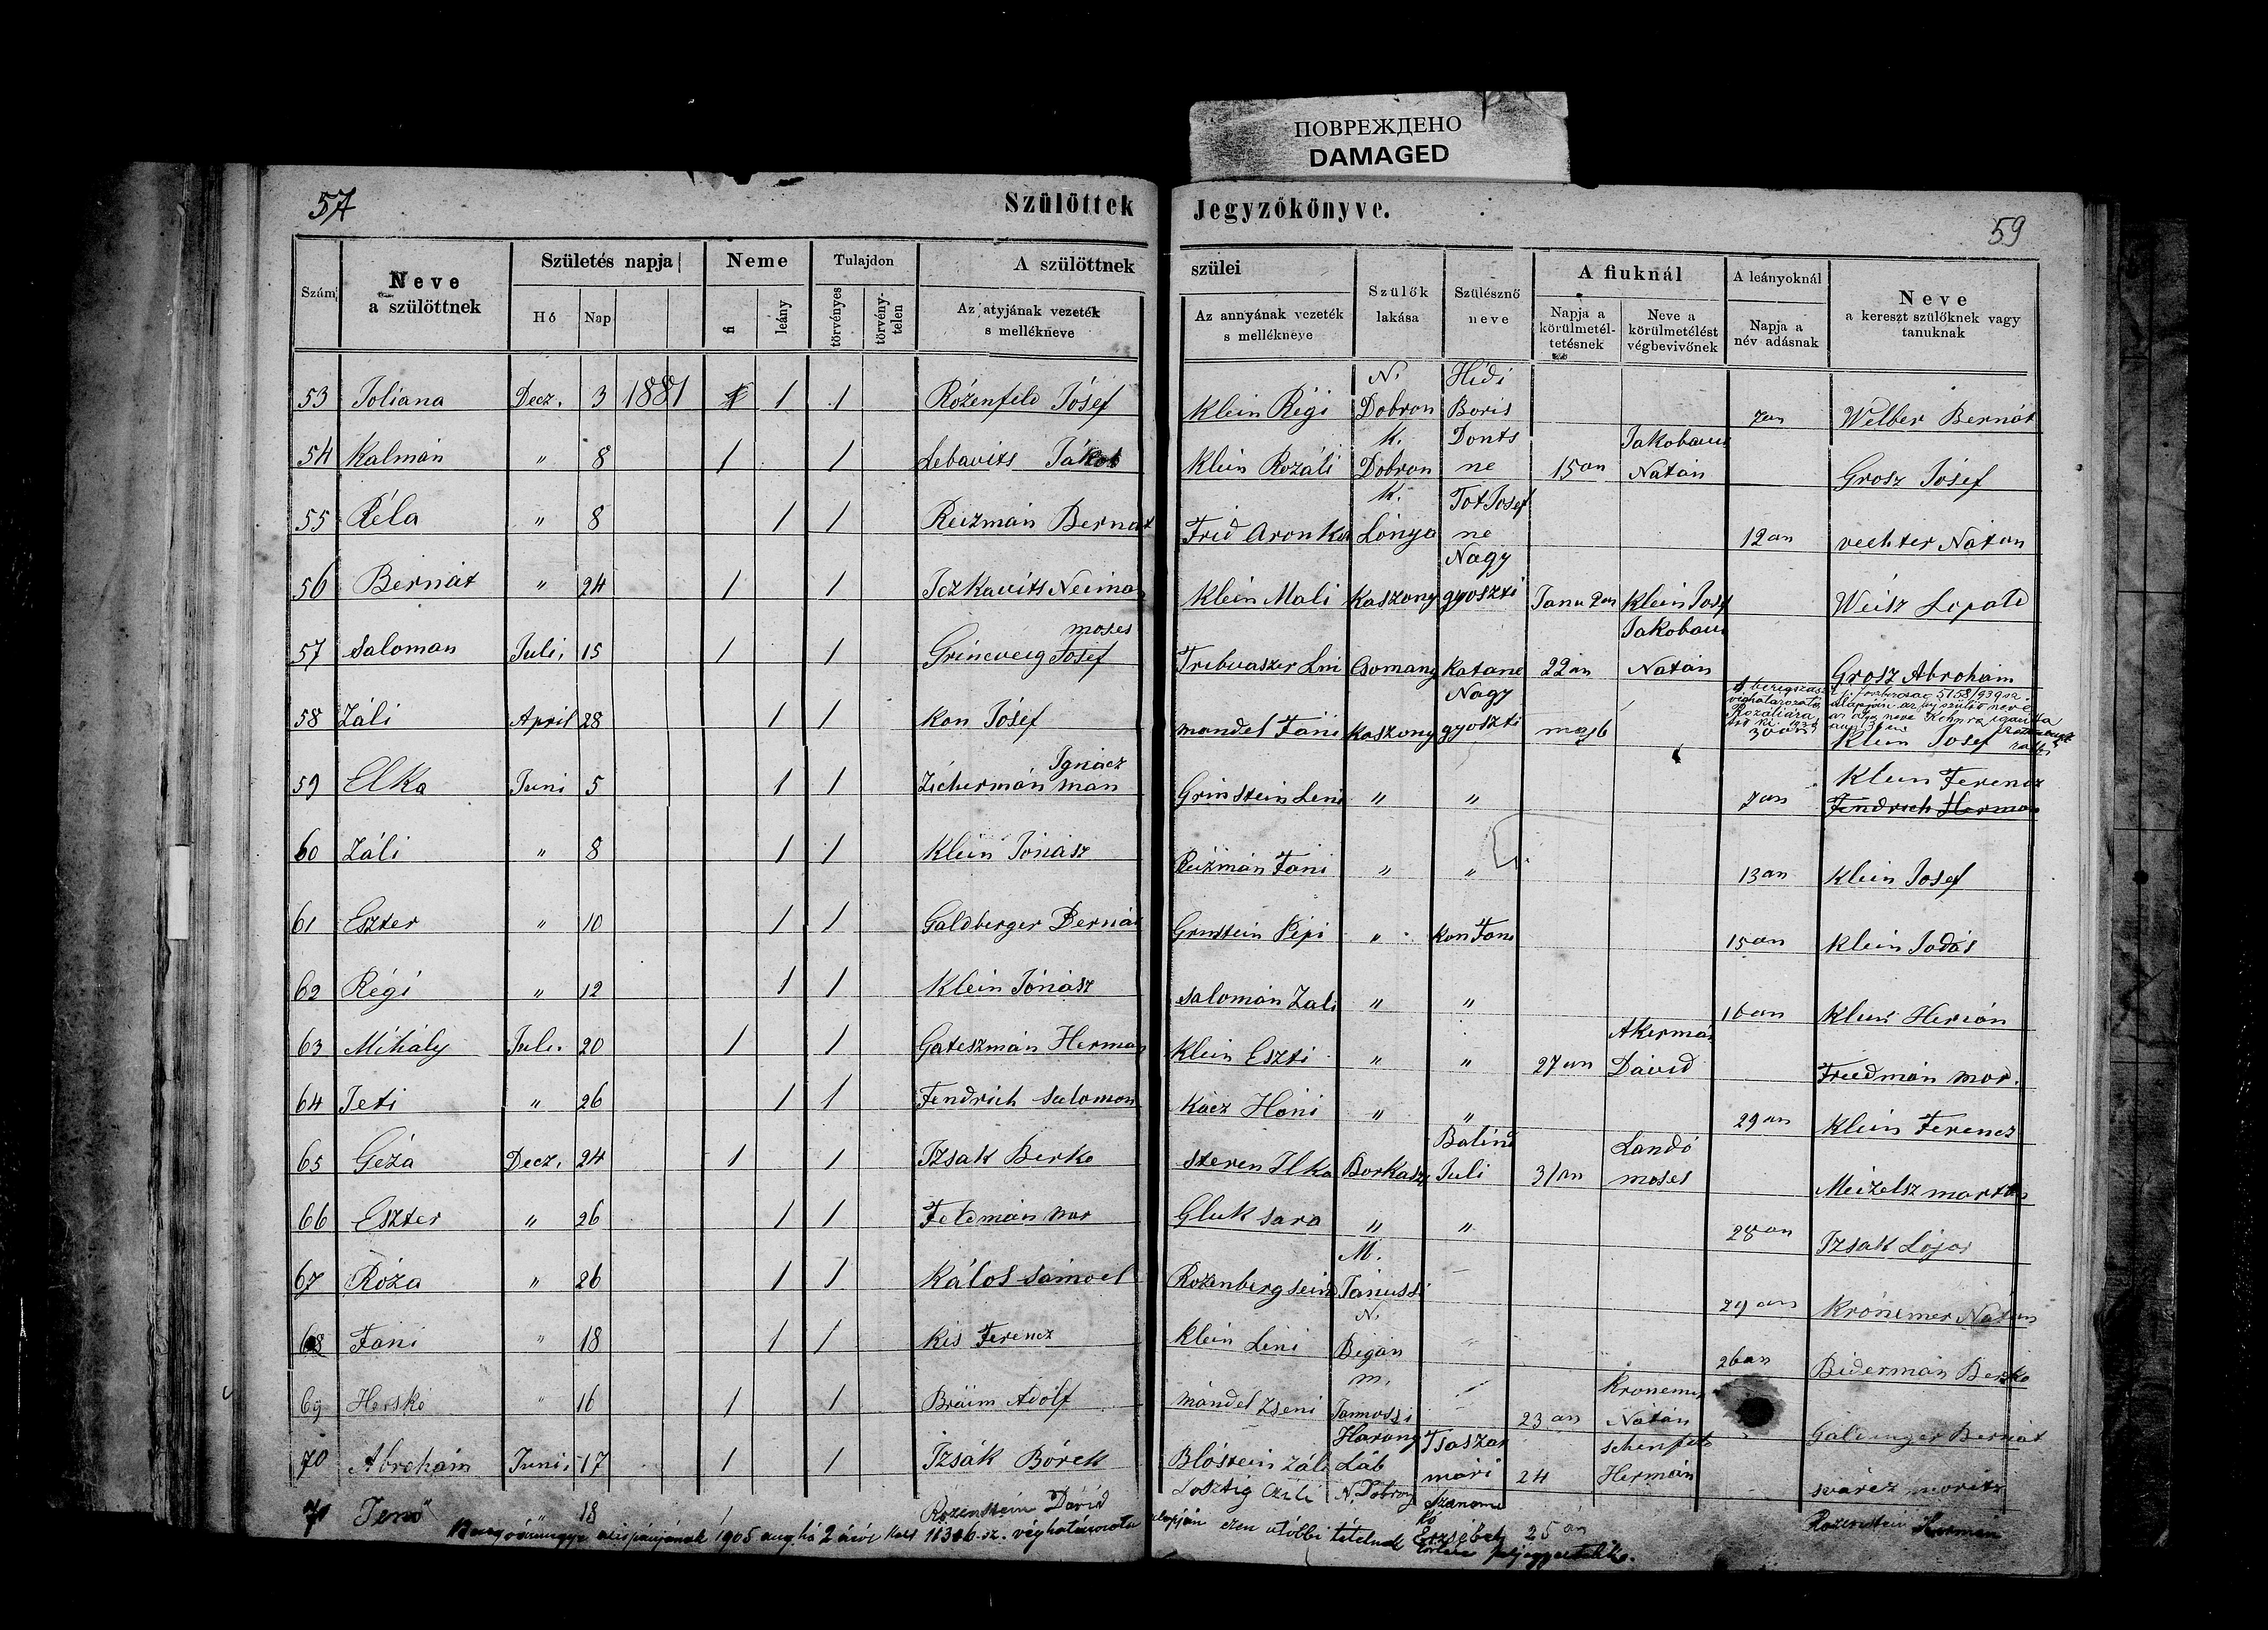 ПОВРЕЖДЕНО
DAMAGED
57
Szülöttek Jegyzőkönyve.
59
Szám
Neve a szülöttnek
Születés napja
Hó
Nap
Neme
fi
leány
Tulajdon
törvényes
törvény-telen
A szülöttnek szülei
Az atyjának vezeték s mellékneve
Az annyának vezeték s mellékneve
Szülők lakása
Szülésznő neve
A fiuknál
Napja a körülmetél-tetésnek
Neve a körülmetélést végbevivőnek
A leányoknál
Napja a név adásnak
Neve a kereszt szülőknek vagy tanuknak
53 Joliana Decz. 3 1881 1 1 Rózenfeld Jósef Klein Régi N. Dobron Hídi Boris 7an Welber Bernát
54 Kalmán " 8 1 1 Lebavits Jákob Klein Rozáli K. Dobron Donts ne 15an Jakobavits Natán Grosz Jósef
55 Réla " 8 1 1 Reizmán Bernat Frid Aronka K. Lónya Tot Josef ne 12an vechter Nátan
56 Bernát " 24 1 1 Iczkavits Neiman Klein Mali Kaszony Nagy gyoszti Janu 2an Klein Josef Weisz Lepold
57 Saloman Juli. 15 1 1 Grineveig moses Josef Csomany Katane 22an Natán Grosz Abrohám
58 Záli April 28 1 1 Kon Jósef mandel Fáni Kaszony Nagy gyoszti maj6 Klein Josef
59 Elka Juni 5 1 1 Zichermán Ignácz man Grinstein Leni " " 7an Klein Ferencz
Fendrich Herman
60 Záli " 8 1 1 Klein Jónász Reizmán Fáni " " 13an Klein Josef
61 Eszter " 10 1 1 Galdberger Bernát Grnstein Pepi " Kon Fani 15an Klein Jodás
62 Régi " 12 1 1 Klein Jónász Salomán Zali " " 16an Klein
63 Mihály Juli. 20 1 1 Gateszmán Herman Klein Eszti " " 27an Akermán Dávid Freedmán mor.
64 Jeti " 26 1 1 Fendrich Salomon Kácz Háni " " 29an Klein Ferencz
65 Géza Decz. 24 1 1 Izsak Berko Szeren Ilka Borkasz Balint Juli 31an Landó moses Meizelsz
66 Eszter " 26 1 1 Feldmán mor Gluk Sara " " 28an Izsak Lajos
67 Róza " 26 1 1 Kálos Sámoel Rozenberg M. Janussi 29an Krónemer Natan
68 Fáni " 18 1 1 Kis Ferencz Klein Leni N. Began 26an Bidermán Berko
69 Herskó " 16 1 1 Braun Adolf mandel Zseni m. Janossi 23an Kronemer Natán Bernát
70 Abrohám Juni. 17 1 1 Izsák Bórek Blóstein Záli Harang Láb Tsaszar mari 24 Hermán svárcz moritz
71 Jenő 18 1 Rozenstein Dávid Losztig N. Dobrony Erzsébet 25an Rozenstein Hermán
1905 aug. hó 2 áról kelt 11306. sz. véghatározata alapján ezen utóbbi tételnek